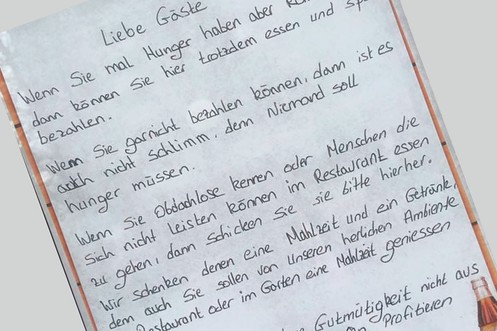 Liebe Gäste
Wenn Sie mal Hunger haben aber
dann können Sie hier trotzdem essen und
bezahlen.
Wenn Sie garnicht bezahlen können, dann ist es
auch nicht schlimm, denn Niemand soll
hunger müssen.
Wenn Sie Obdachlose kennen oder Menschen die
Sich nicht leisten können im Restaurant essen
zu gehen, dann Schicken Sie sie bitte hierher.
Wir schenken denen eine Mahlzeit und ein Getränk,
dem auch Sie sollen von unseren herlichen Ambiente
Restaurant oder im Garten eine Mahlzeit geniessen
Gutmütigkeit nicht aus
Profitieren